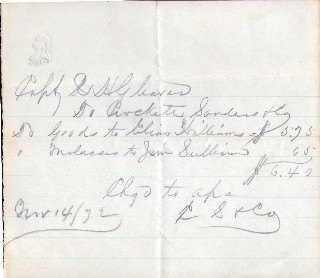 Capt D H Gleaves
To Crockett Sanders & Co
To Goods to William $ 5.75
" Molasses to Jim Sullivan 65
$ 6.40
Chgd to
Nov 14/72 C S & Co